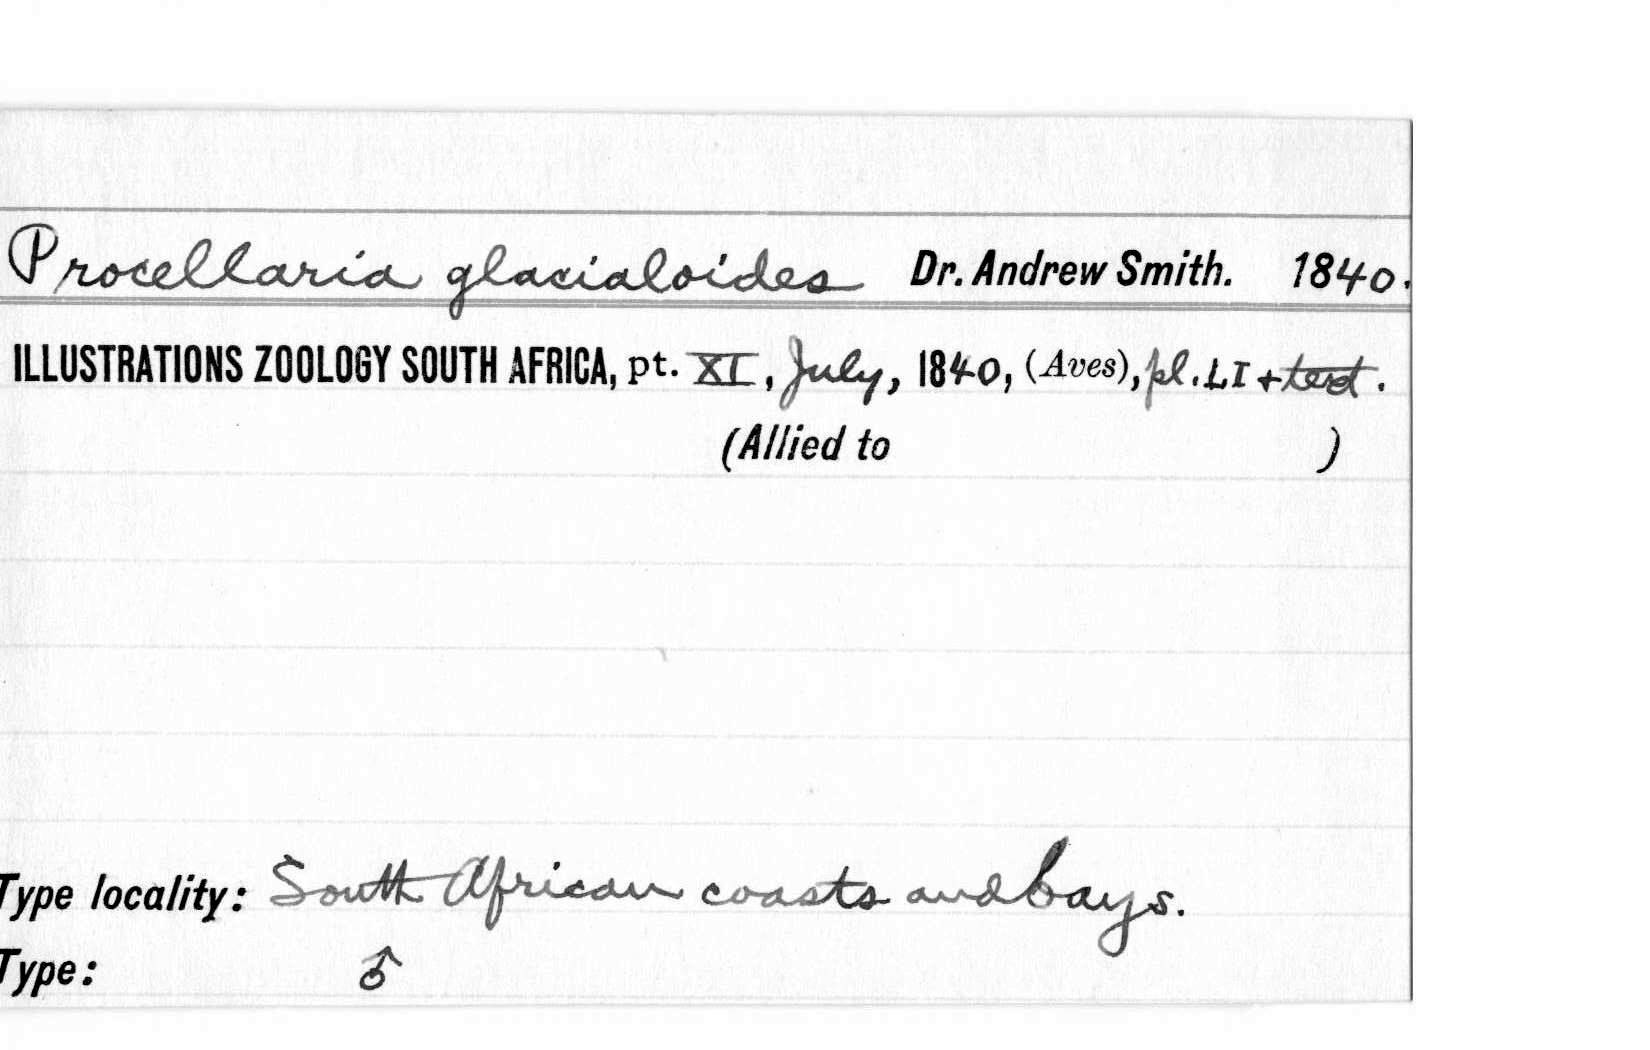 Procellaria glacialoides Dr. Andrew Smith. 1840.
ILLUSTRATIONS ZOOLOGY SOUTH AFRICA, pt. XI, July, 1840, (Aves), pl. LI + text.
(Allied to )
Type locality: South African coasts and bays.
Type: ♂